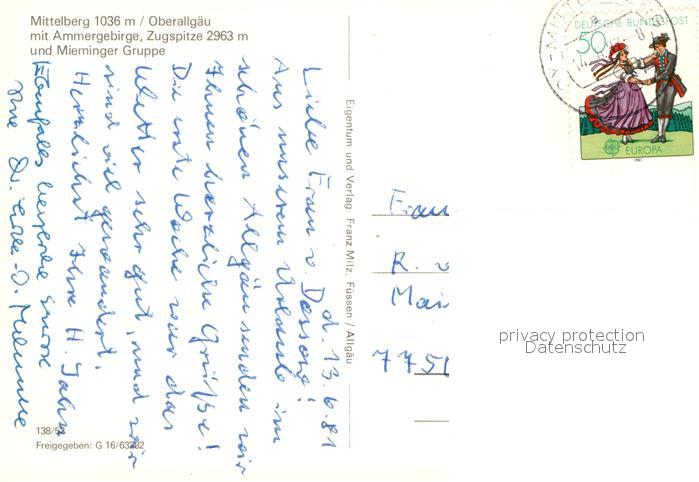 Mittelberg 1036 m / Oberallgäu
mit Ammergebirge, Zugspitze 2963 m
und Mieminger Gruppe
d. 13.6.81
Liebe Frau v.
Aus unserem Urlaub im
schönen Allgäu senden wir
Ihnen herzliche Grüße!
Die erste Woche war das
Wetter sehr gut, und wir
sind viel gewandert.
Herzlichst Ihre H. Jahn
Ebenfalls herzliche Grüsse
Ihre Dr.
138/52
Freigegeben: G 16/63232
Eigentum und Verlag: Franz Milz, Füssen / Allgäu
DEUTSCHE BUNDESPOST
50
EUROPA
1981
Frau
R. v
Mai
775
privacy protection
Datenschutz